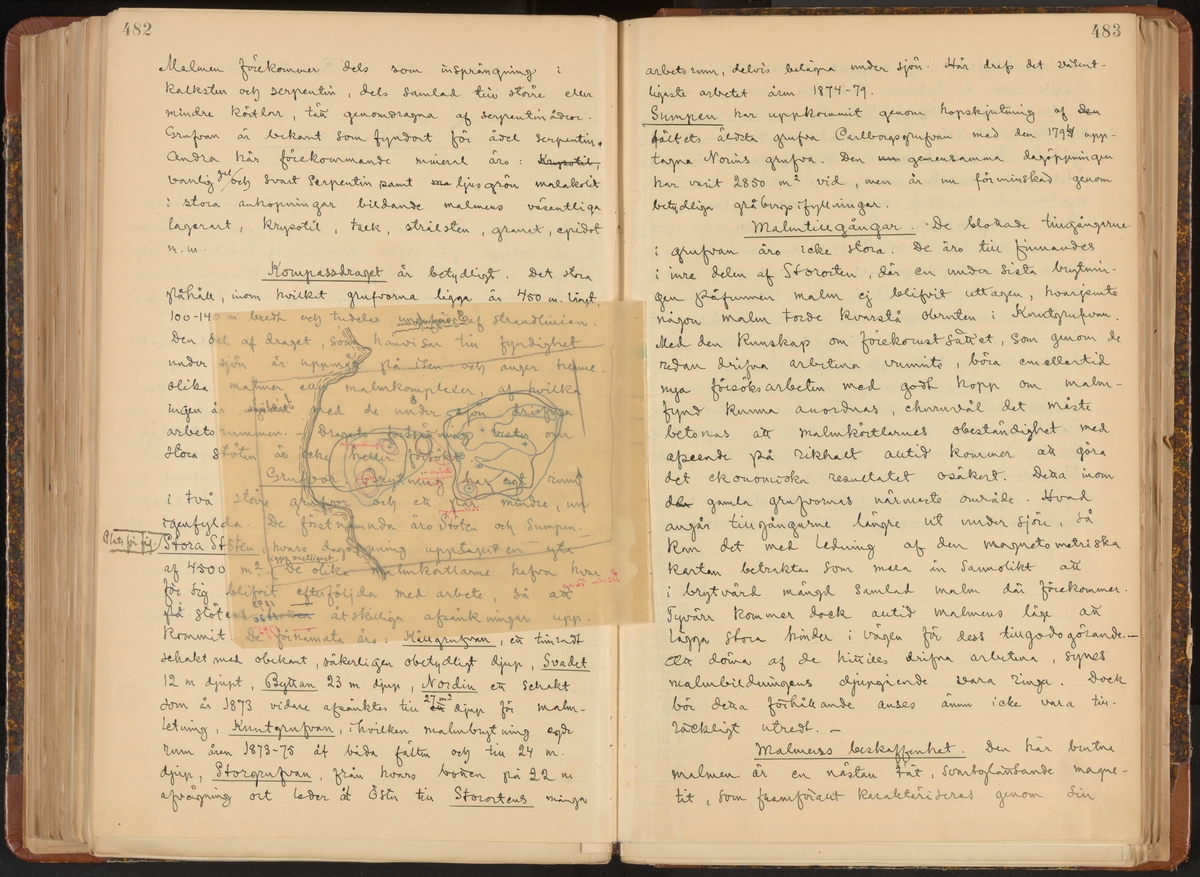 482
Malmen förekommer dels som insprängning i
kalksten och serpentin, dels samlad till större eller
mindre körtlar, tätt genomdragna af serpentinådror.
Grufvan är bekant som fyndort för ädel serpentin.
Andra här förekommande mineral äro: Krysotil,
vanlig gul och svart Serpentin samt ljusgrön malakolit
i stora anhopningar bildande malmens väsentliga
lagerart, krysotil, talk, strålsten, granat, epidot
m.m.
Kompassdraget är betydligt. Det stora
påhåll, inom hvilket grufvorna ligga är 450 m. långt,
100-140 m bredt och tudelas af strandlinien.
Den del af draget, som hänvisar till fyndighet
under sjön är uppmätt på isen och anger flere
olika malmer eller malmkomplexer, af hvilka
ingen är med de under sjön drifna
arbetsrummen. Dragets fortsättning väster om
stora Stöten är icke heller försökt.
Grufvor. Brytning har egt rum
i två större grufvor och ett par mindre, nu
igenfyllda. De förstnämnda äro Stöten och Sumpen.
Plats för fig.
Stora Stöten, hvars dagöppning upptager en yta
af 4500 m². De olika malmkörtlarne hafva hvar
för sig blifvit efterföljda med arbete, så att
på stötens åtskilliga afsänkningar upp-
kommit. De förnämsta äro: Hällgrufvan, ett tunnadt
schakt med obekant, säkerligen obetydligt djup, Svadet
12 m djupt, Byttan 23 m djup, Nordin ett schakt
som år 1873 vidare afsänktes till 27 m:s djup för malm-
letning, Knutgrufvan, i hvilken malmbrytning egde
rum åren 1873-75 åt båda fälten och till 24 m.
djup, Storgrufvan, från hvars botten på 22 m
afvägning ort leder åt Öster till Storortens många
483
arbetsrum, delvis belägna under sjön. Här drefs det väsent-
ligaste arbetet åren 1874-79.
Sumpen har uppkommit genom hopskjutning af den
fältets äldsta grufva Carlbergsgrufvan med den 1794 upp-
tagna Norins grufva. Den gemensamma dagöppningen
har varit 2850 m² vid, men är nu förminskad genom
betydliga gråbergsifyllningar.
Malmtillgångar. De blottade tillgångarne
i grufvan äro icke stora. De äro till finnandes
i inre delen af Stororten, där en under sista brytnin-
gen påfunnen malm ej blifvit uttagen, hvarjemte
någon malm torde kvarstå obruten i Knutgrufvan.
Med den kunskap om förekomstsättet, som genom de
redan drifna arbetena vunnits, böra emellertid
nya försöksarbeten med godt hopp om malm-
fynd kunna anordnas, ehuruväl det måste
betonas att malmkörtlarnes obeständighet med
afseende på rikhalt alltid kommer att göra
det ekonomiska resultatet osäkert. Detta inom
de gamla grufvornas närmaste område. Hvad
angår tillgångarne längre ut under sjön, så
kan det med ledning af den magnetometriska
kartan betraktas som mera än sannolikt att
i brytvärd mängd samlad malm där förekommer.
Tyvärr kommer dock alltid malmens läge att
lägga stora hinder i vägen för dess tillgodogörande.—
Att döma af de hittills drifna arbetena, synes
malmbildningens djupgående vara ringa. Dock
bör detta förhållande anses ännu icke vara till-
räckligt utredt. —
Malmens beskaffenhet. Den här brutna
malmen är en nästan tät, svartglänsande magne-
tit, som framförallt karaktäriseras genom sin